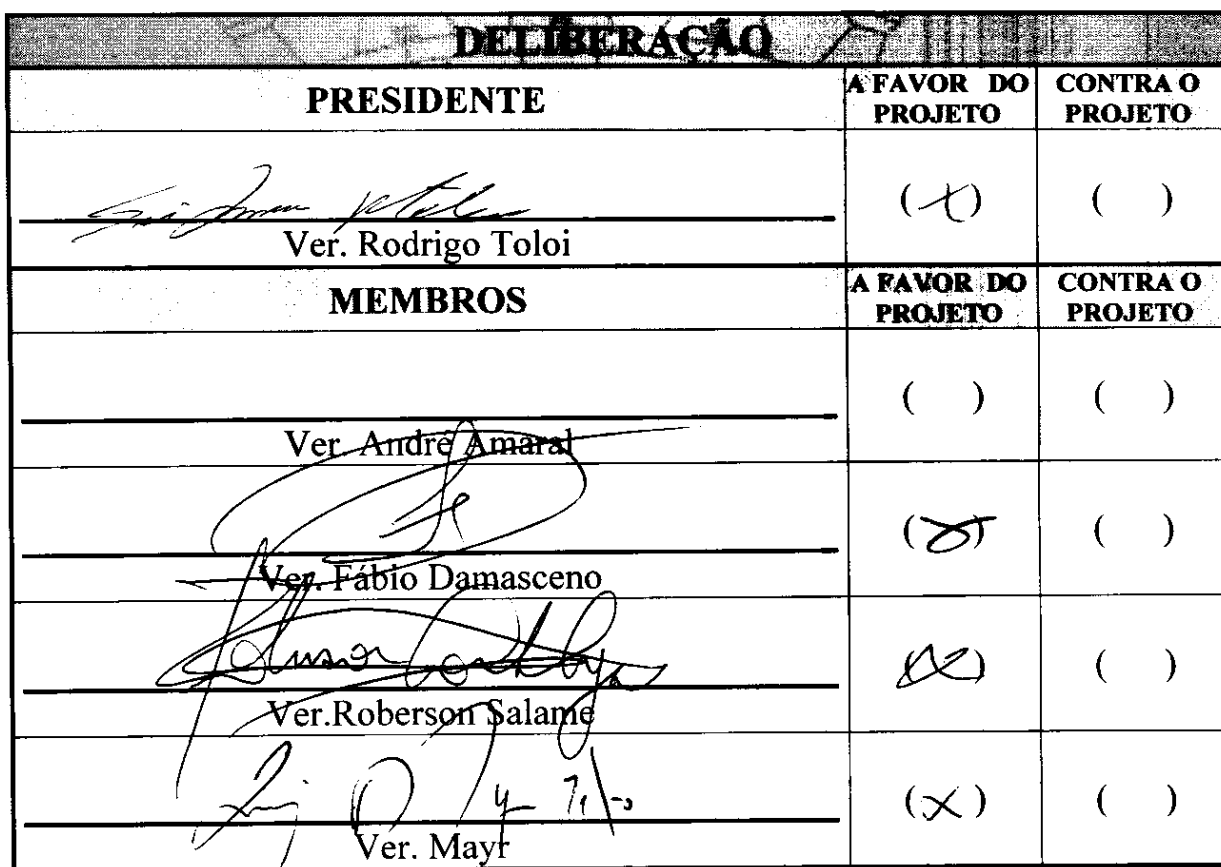 DELIBERAÇÃO
PRESIDENTE
A FAVOR DO PROJETO
CONTRA O PROJETO
( X )
( )
Ver. Rodrigo Toloi
MEMBROS
A FAVOR DO PROJETO
CONTRA O PROJETO
( )
( )
Ver. André Amaral
( X )
( )
Ver. Fábio Damasceno
( X )
( )
Ver.Roberson Salame
( X )
( )
Ver. Mayr